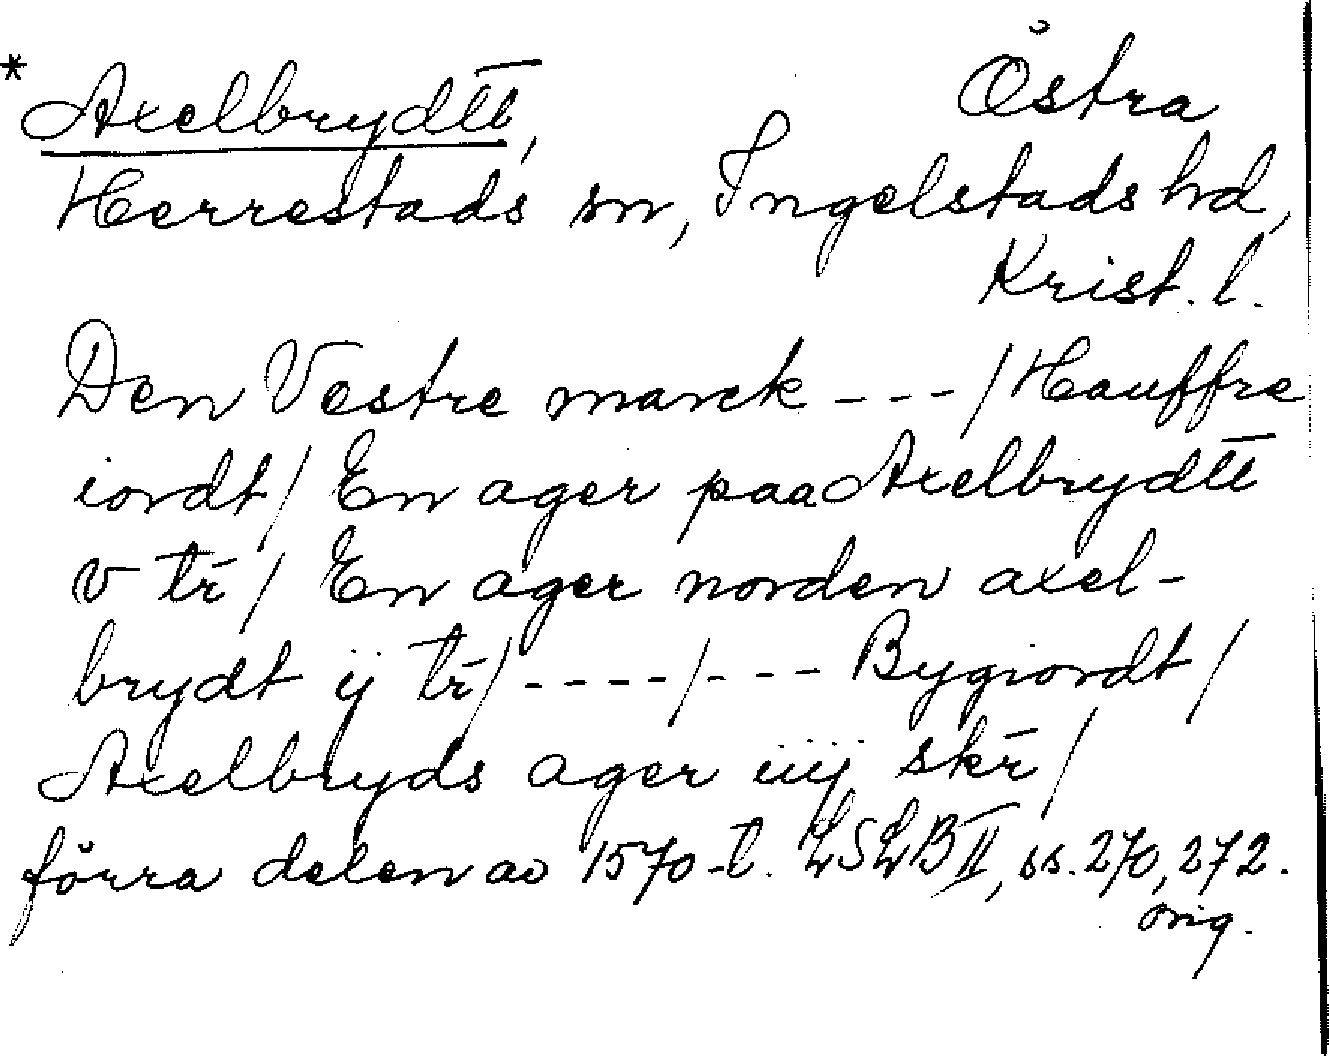 * Axelbrydtt̄, Östra
Herrestads sn, Ingelstads hd,
Krist. l.
Den Vestre marck --- / Hauffre
iordt / En ager paa Axelbrydtt̄
v tr̄ / En ager norden axel-
brydt ij tr̄ / ---- / --- Bygiordt /
Axelbryds ager iiij skr̄ /
förra delen av 1570-t. LSLB II, ss. 270, 272.
orig.